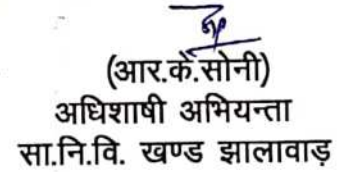 (आर.के.सोनी)
अधिशाषी अभियन्ता
सा.नि.वि. खण्ड झालावाड़